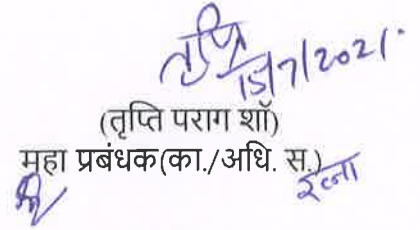 तृप्ति
15/7/2021
(तृप्ति पराग शॉ)
महा प्रबंधक(का./अधि. स.)